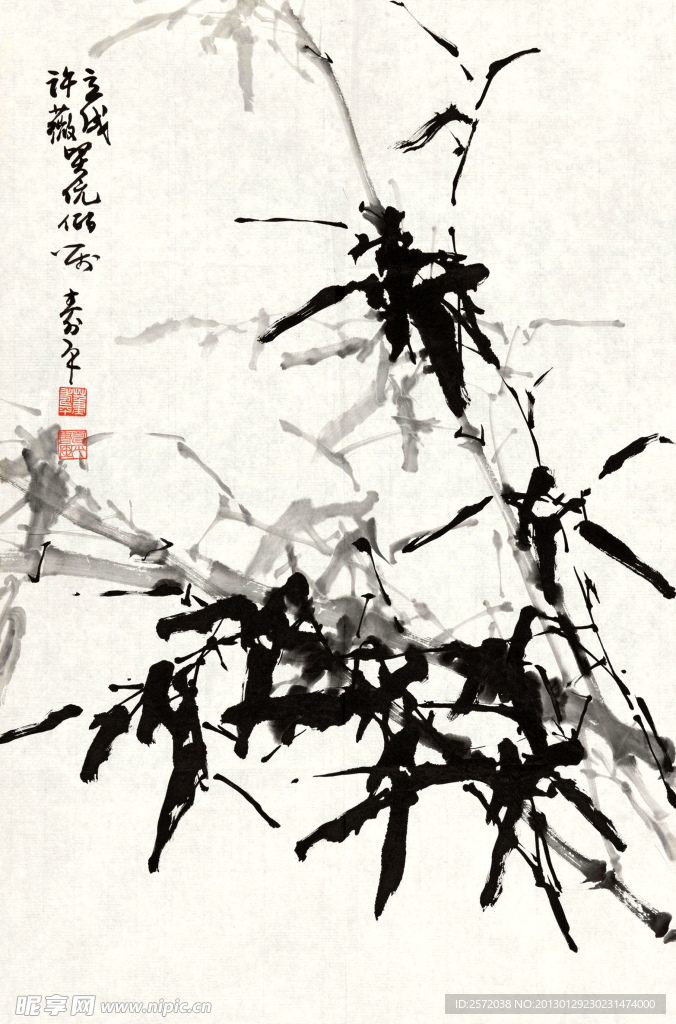 立成
許薇
賢伉儷囑
壽平
昵享网 www.nipic.cn
ID:2572038 NO:20130129230231474000